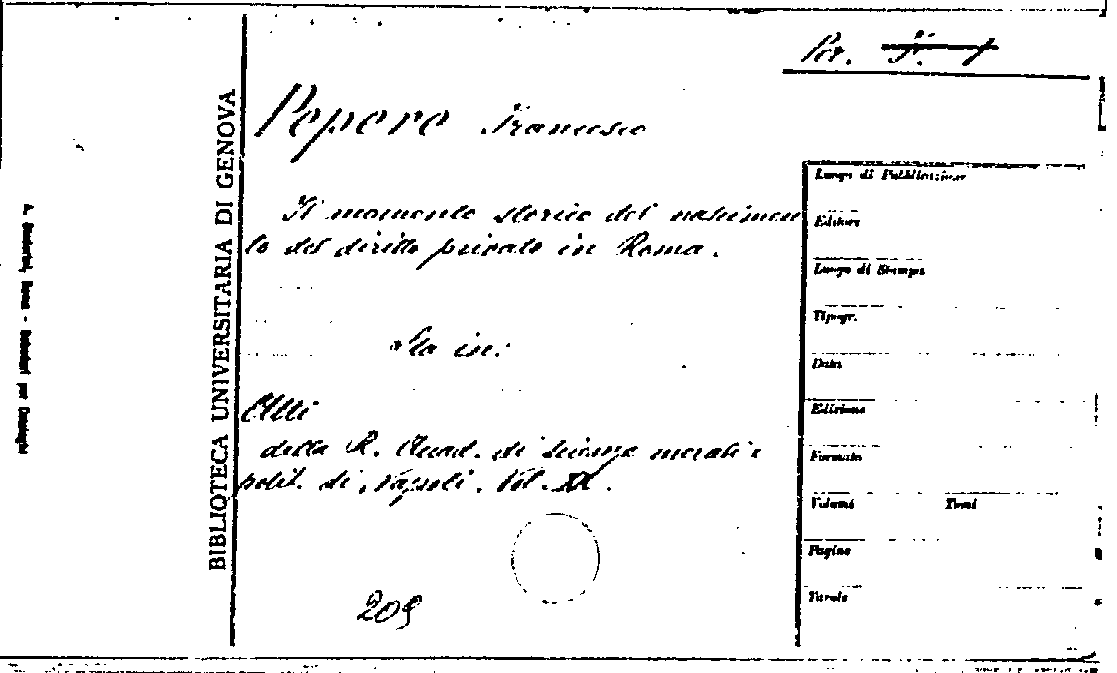 Per.
Pepere Francesco
Il momento storico del nascimen
to del diritto privato in Roma.
Sta in:
Atti
della R. Accad. di scienze morali e
polit. di Napoli. Vol.
209
BIBLIOTECA UNIVERSITARIA DI GENOVA
Luogo di Pubblicazione
Editore
Luogo di Stampa
Tipogr.
Data
Edizione
Formato
Volumi Tomi
Pagine
Tavole